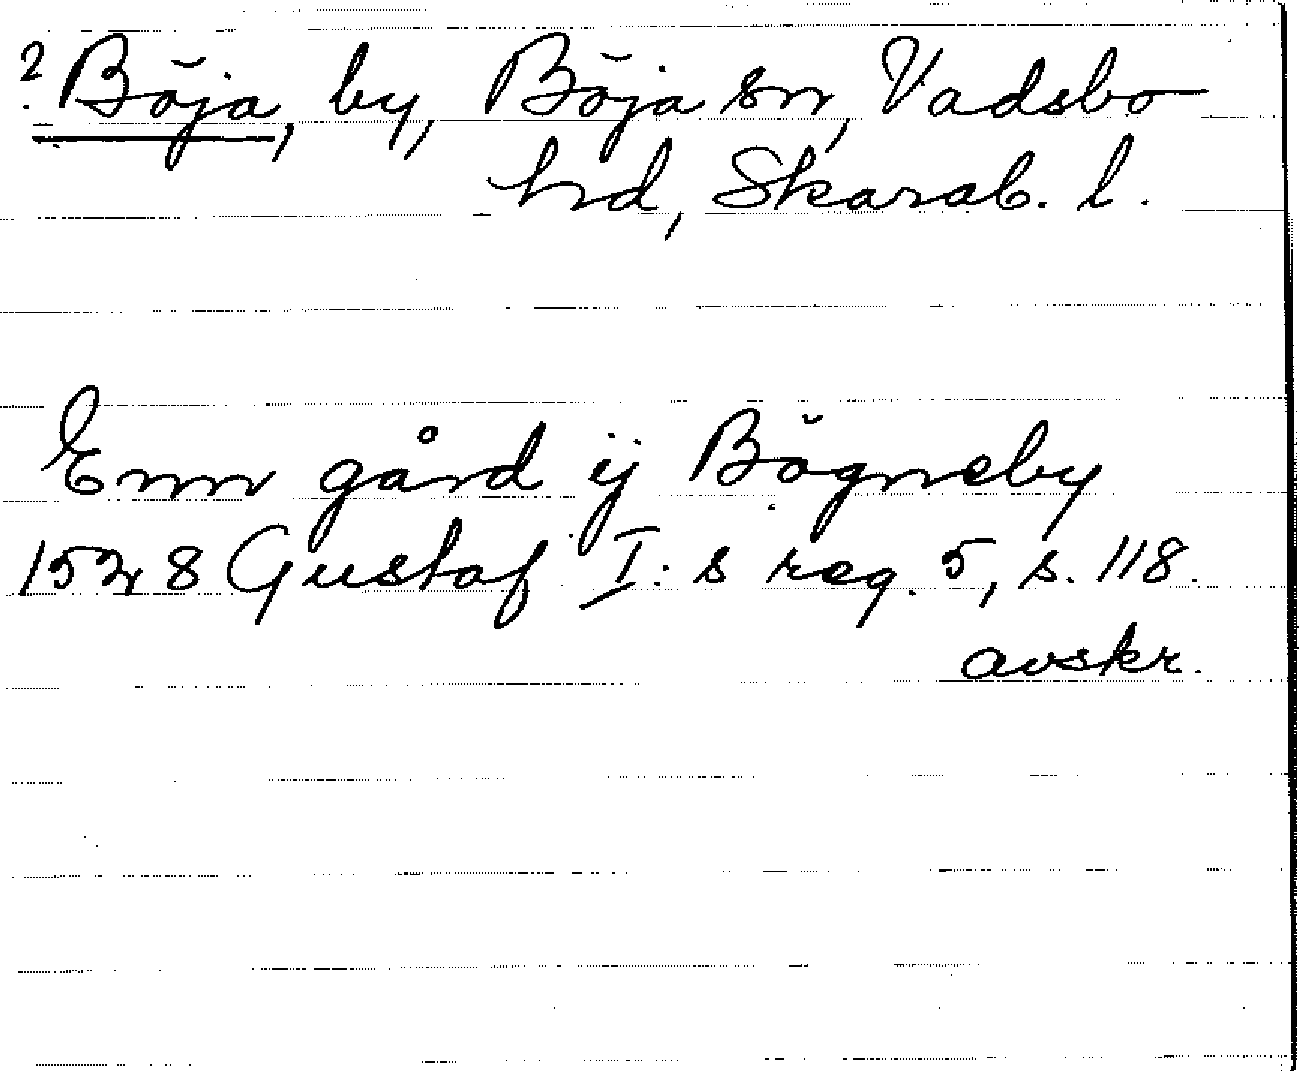 ? Böja, by, Böja sn, Vadsbo
hd, Skarab. l.
Enn gård ij Bögneby
1528 Gustaf I:s reg. 5, s. 118.
avskr.